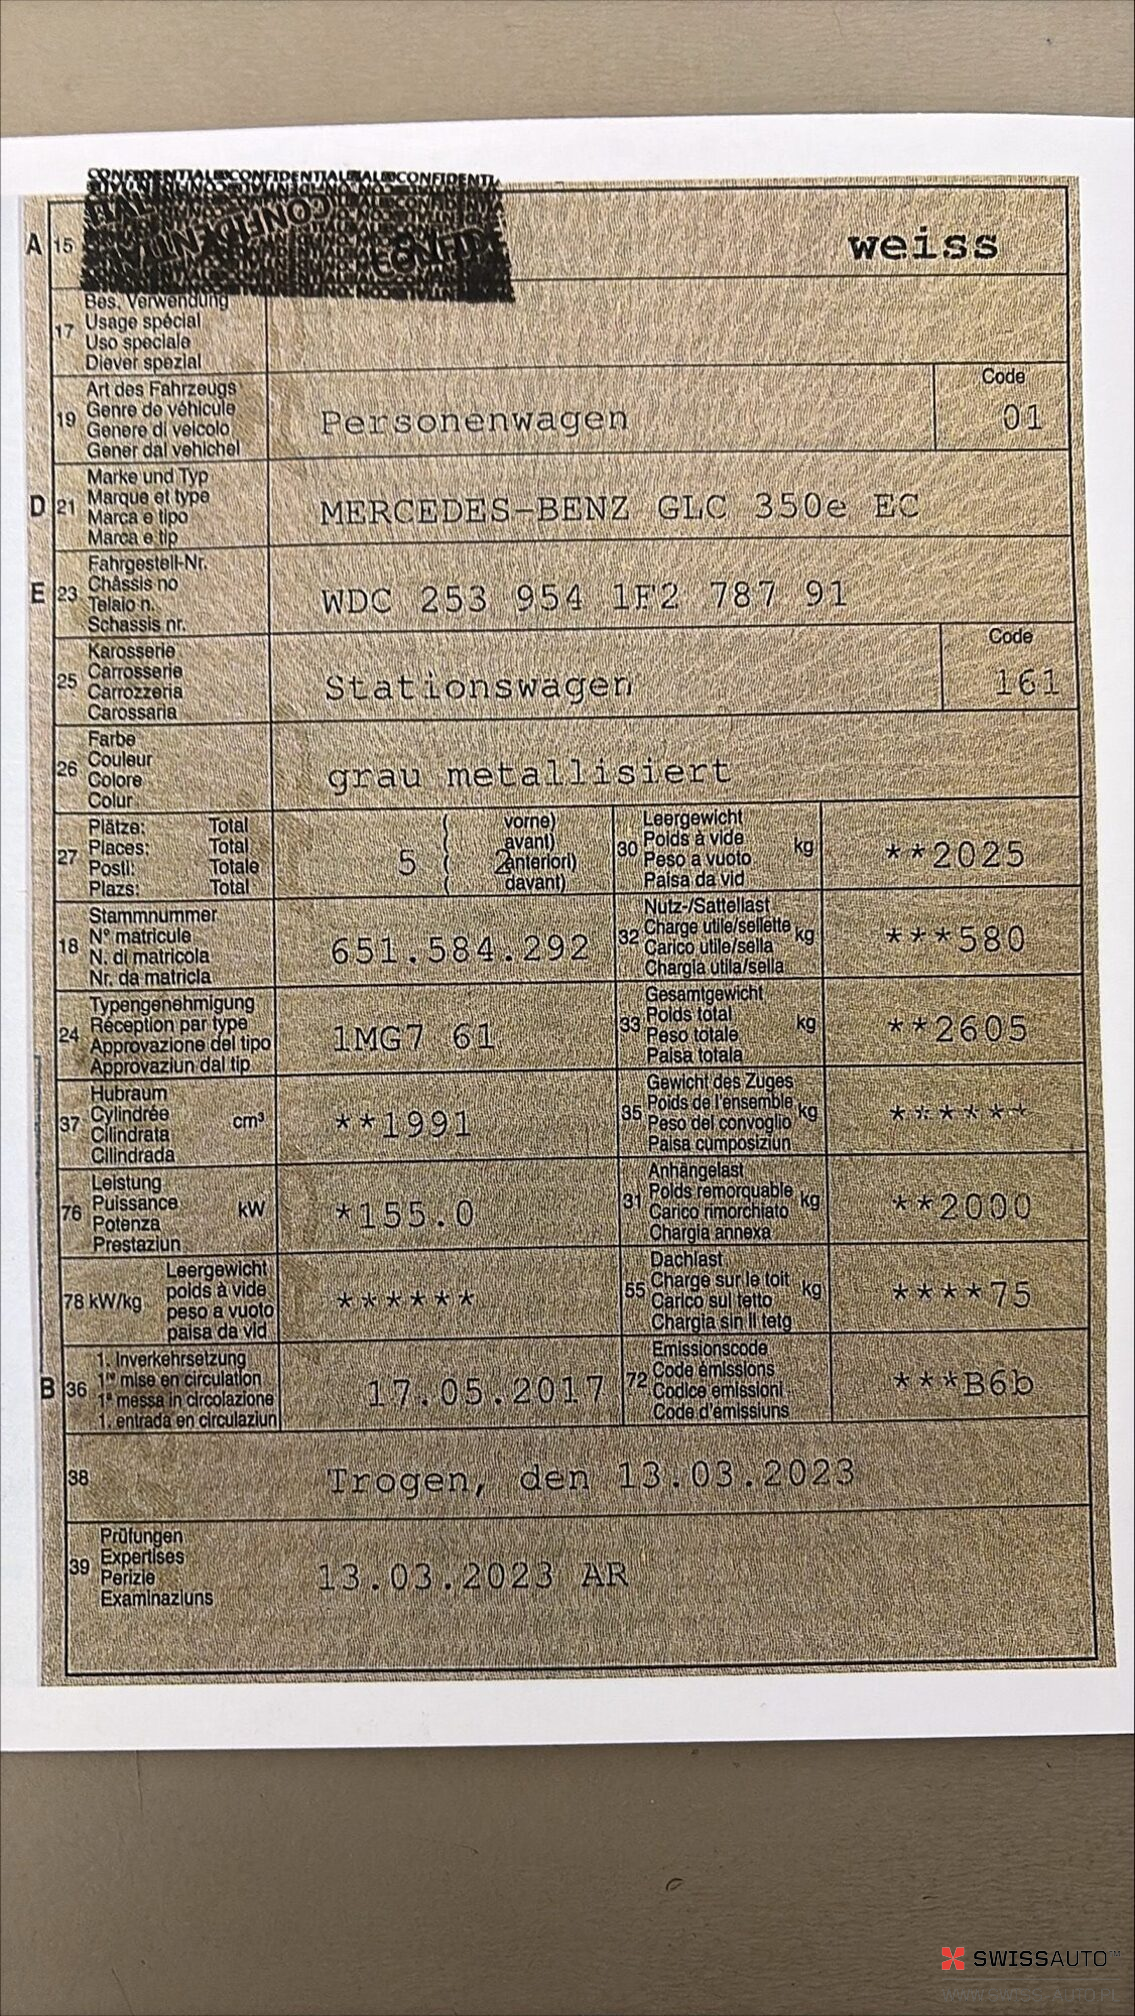 CONFIDENTIAL CONFIDENTIAL CONFIDENTI
A 15 weiss
17 Bes. Verwendung
Usage spécial
Uso speciale
Diever spezial
19 Art des Fahrzeugs
Genre de véhicule
Genere di veicolo
Gener dal vehichel
Personenwagen
Code
01
D 21 Marke und Typ
Marque et type
Marca e tipo
Marca e tip
MERCEDES-BENZ GLC 350e EC
E 23 Fahrgestell-Nr.
Châssis no
Telaio n.
Schassis nr.
WDC 253 954 1F2 787 91
25 Karosserie
Carrosserie
Carrozzeria
Carossaria
Stationswagen
Code
161
26 Farbe
Couleur
Colore
Colur
grau metallisiert
27 Plätze: Total
Places: Total
Posti: Totale
Plazs: Total
5 ( vorne)
( avant)
( 2 anteriori)
( davant)
30 Leergewicht
Poids à vide kg
Peso a vuoto
Paisa da vid
**2025
18 Stammnummer
N° matricule
N. di matricola
Nr. da matricla
651.584.292
32 Nutz-/Sattellast
Charge utile/sellette kg
Carico utile/sella
Chargia utila/sella
***580
24 Typengenehmigung
Réception par type
Approvazione del tipo
Approvaziun dal tip
1MG7 61
33 Gesamtgewicht
Poids total kg
Peso totale
Paisa totala
**2605
37 Hubraum
Cylindrée cm³
Cilindrata
Cilindrada
**1991
35 Gewicht des Zuges
Poids de l'ensemble kg
Peso del convoglio
Paisa cumposiziun
******
76 Leistung
Puissance kW
Potenza
Prestaziun
*155.0
31 Anhängelast
Poids remorquable kg
Carico rimorchiato
Chargia annexa
**2000
78 kW/kg Leergewicht
poids à vide
peso a vuoto
paisa da vid
******
55 Dachlast
Charge sur le toit kg
Carico sul tetto
Chargia sin il tetg
****75
B 36 1. Inverkehrsetzung
1re mise en circulation
1a messa in circolazione
1. entrada en circulaziun
17.05.2017
72 Emissionscode
Code émissions
Codice emissioni
Code d'émissiuns
***B6b
38 Trogen, den 13.03.2023
39 Prüfungen
Expertises
Perizie
Examinaziuns
13.03.2023 AR
SWISSAUTO™